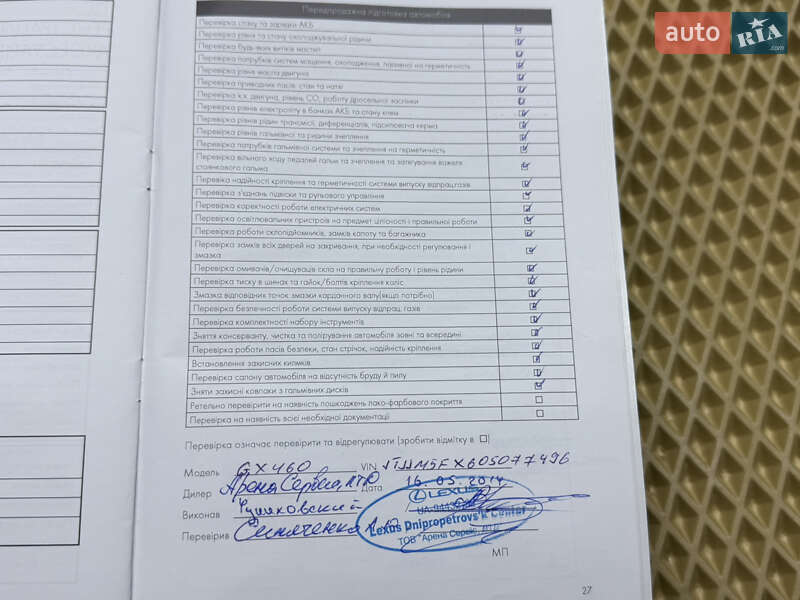 auto RIA .com
Передпродажна підготовка автомобіля
Перевірка стану та зарядки АКБ
Перевірка рівня та стану охолоджувальної рідини
Перевірка будь-яких витіків мастил
Перевірка патрубків систем мащення, охолодження, паливної на герметичність
Перевірка рівня масла двигуна
Перевірка приводних пасів: стан та натяг
Перевірка х.х. двигуна, рівень СО, роботу дросельної заслінки
Перевірка рівнів електроліту в банках АКБ та стану клем
Перевірка рівнів рідин трансмісії, диференціалів, підсилювача керма
Перевірка рівнів гальмівної та рідини зчеплення
Перевірка патрубків гальмівної системи та зчеплення на герметичність
Перевірка вільного ходу педалей гальм та зчеплення та затягування важеля
стоянкового гальма
Перевірка надійності кріплення та герметичності системи випуску відпрац.газів
Перевірка з'єднань підвіски та рульового управління
Перевірка коректності роботи електричних систем
Перевірка освітлювальних пристроїв на предмет цілісності і правильної роботи
Перевірка роботи склопідйомників, замків капоту та багажника
Перевірка замків всіх дверей на закривання, при необхідності регулювання і
змазка
Перевірка омивачів/очищувачів скла на правильну роботу і рівень рідини
Перевірка тиску в шинах та гайок/болтів кріплення коліс
Змазка відповідних точок змазки карданного валу(якщо потрібно)
Перевірка безпечності роботи системи випуску відпрац. газів
Перевірка комплектності набору інструментів
Зняття консерванту, чистка та полірування автомобіля зовні та всередині
Перевірка роботи пасів безпеки, стан стрічок, надійність кріплення
Встановлення захисних килимків
Перевірка салону автомобіля на відсутність бруду й пилу
Зняти захисні ковпаки з гальмівних дисків
Ретельно перевірити на наявність пошкоджень лако-фарбового покриття
Перевірка на наявність всієї необхідної документації
Перевірка означає перевірити та відрегулювати (зробити відмітку в □)
Модель GX460 VIN JTJJM5FX605077496
Дилер Арена Сервис ЛТД Дата 16.05.2014
Виконав
Перевірив
LEXUS
Lexus Dnipropetrovs'k Center
ТОВ "Арена Сервіс ЛТД"
МП
27